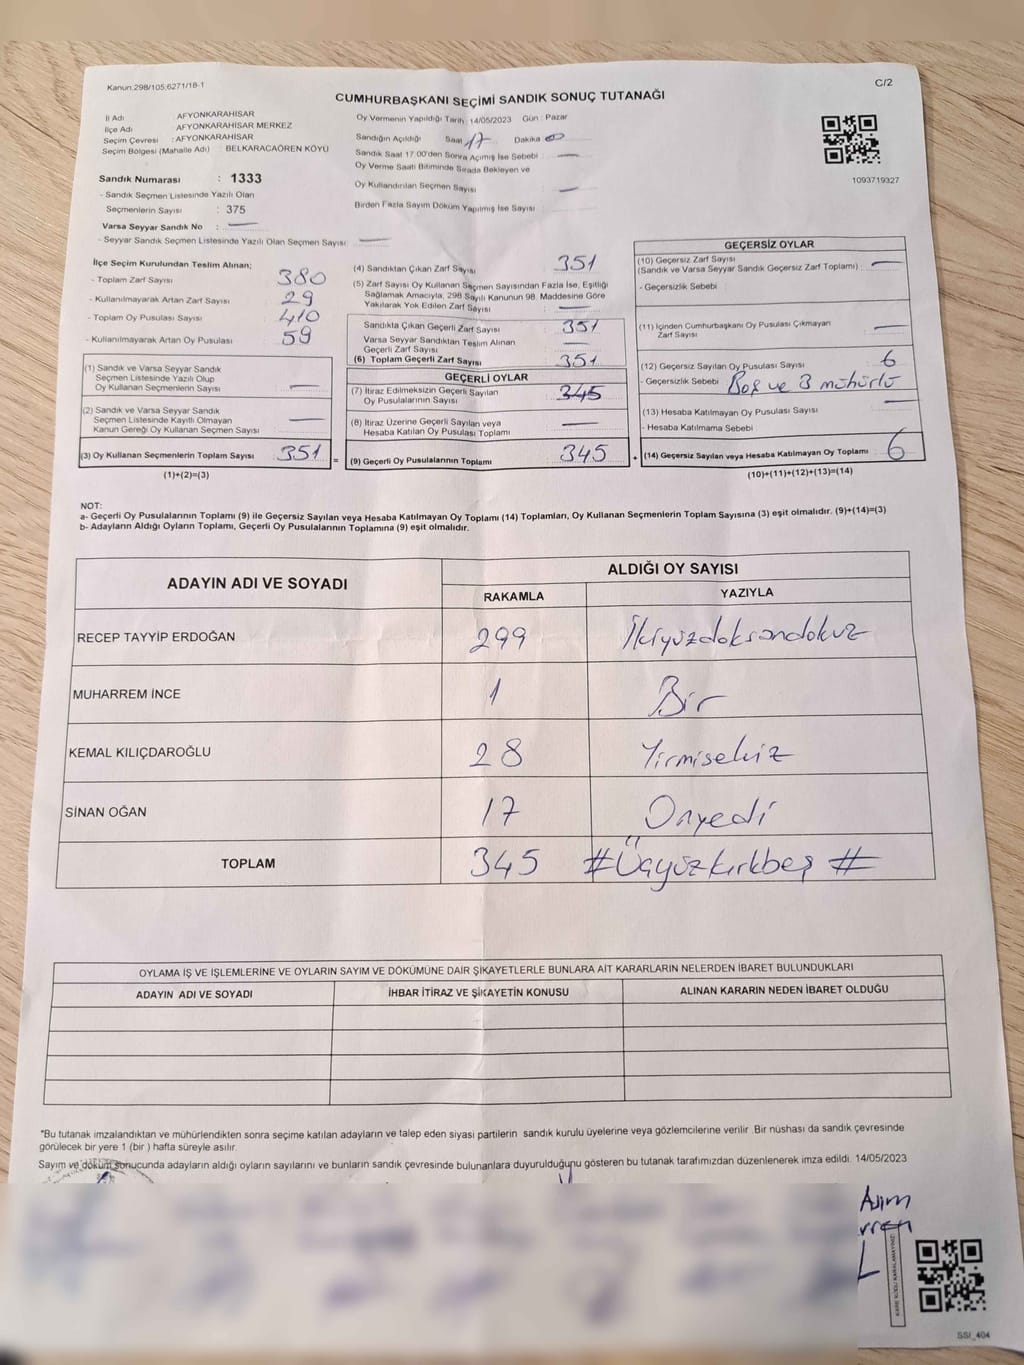 Kanun.298/105,6271/18-1
C/2
CUMHURBAŞKANI SEÇİMİ SANDIK SONUÇ TUTANAĞI
İl Adı : AFYONKARAHİSAR
İlçe Adı : AFYONKARAHİSAR MERKEZ
Seçim Çevresi : AFYONKARAHİSAR
Seçim Bölgesi (Mahalle Adı) : BELKARACAÖREN KÖYÜ
Sandık Numarası : 1333
- Sandık Seçmen Listesinde Yazılı Olan
Seçmenlerin Sayısı : 375
Varsa Seyyar Sandık No : —
- Seyyar Sandık Seçmen Listesinde Yazılı Olan Seçmen Sayısı : —
Oy Vermenin Yapıldığı Tarih : 14/05/2023 Gün : Pazar
Sandığın Açıldığı Saat 17 Dakika 00
Sandık Saat 17.00'den Sonra Açılmış İse Sebebi : —
Oy Verme Saati Bitiminde Sırada Bekleyen ve
Oy Kullandırılan Seçmen Sayısı : —
Birden Fazla Sayım Döküm Yapılmış İse Sayısı :
1093719327
İlçe Seçim Kurulundan Teslim Alınan;
- Toplam Zarf Sayısı : 380
- Kullanılmayarak Artan Zarf Sayısı : 29
- Toplam Oy Pusulası Sayısı : 410
- Kullanılmayarak Artan Oy Pusulası : 59
(1) Sandık ve Varsa Seyyar Sandık
Seçmen Listesinde Yazılı Olup
Oy Kullanan Seçmenlerin Sayısı : —
(2) Sandık ve Varsa Seyyar Sandık
Seçmen Listesinde Kayıtlı Olmayan
Kanun Gereği Oy Kullanan Seçmen Sayısı : —
(3) Oy Kullanan Seçmenlerin Toplam Sayısı : 351
(1)+(2)=(3)
(4) Sandıktan Çıkan Zarf Sayısı : 351
(5) Zarf Sayısı Oy Kullanan Seçmen Sayısından Fazla İse, Eşitliği
Sağlamak Amacıyla, 298 Sayılı Kanunun 98. Maddesine Göre
Yakılarak Yok Edilen Zarf Sayısı : —
Sandıkta Çıkan Geçerli Zarf Sayısı : 351
Varsa Seyyar Sandıktan Teslim Alınan
Geçerli Zarf Sayısı : —
(6) Toplam Geçerli Zarf Sayısı : 351
GEÇERLİ OYLAR
(7) İtiraz Edilmeksizin Geçerli Sayılan
Oy Pusulalarının Sayısı : 345
(8) İtiraz Üzerine Geçerli Sayılan veya
Hesaba Katılan Oy Pusulası Toplamı : —
= (9) Geçerli Oy Pusulalarının Toplamı : 345
GEÇERSİZ OYLAR
(10) Geçersiz Zarf Sayısı
(Sandık ve Varsa Seyyar Sandık Geçersiz Zarf Toplamı) : —
- Geçersizlik Sebebi :
(11) İçinden Cumhurbaşkanı Oy Pusulası Çıkmayan
Zarf Sayısı : —
(12) Geçersiz Sayılan Oy Pusulası Sayısı : 6
- Geçersizlik Sebebi : Boş ve 3 mühürlü
(13) Hesaba Katılmayan Oy Pusulası Sayısı : —
- Hesaba Katılmama Sebebi :
+ (14) Geçersiz Sayılan veya Hesaba Katılmayan Oy Toplamı : 6
(10)+(11)+(12)+(13)=(14)
NOT:
a- Geçerli Oy Pusulalarının Toplamı (9) ile Geçersiz Sayılan veya Hesaba Katılmayan Oy Toplamı (14) Toplamları, Oy Kullanan Seçmenlerin Toplam Sayısına (3) eşit olmalıdır. (9)+(14)=(3)
b- Adayların Aldığı Oyların Toplamı, Geçerli Oy Pusulalarının Toplamına (9) eşit olmalıdır.
ADAYIN ADI VE SOYADI
ALDIĞI OY SAYISI
RAKAMLA YAZIYLA
RECEP TAYYİP ERDOĞAN 299 İkiyüzdoksandokuz
MUHARREM İNCE 1 Bir
KEMAL KILIÇDAROĞLU 28 Yirmisekiz
SİNAN OĞAN 17 Onyedi
TOPLAM 345 #Üçyüzkırkbeş #
OYLAMA İŞ VE İŞLEMLERİNE VE OYLARIN SAYIM VE DÖKÜMÜNE DAİR ŞİKAYETLERLE BUNLARA AİT KARARLARIN NELERDEN İBARET BULUNDUKLARI
ADAYIN ADI VE SOYADI İHBAR İTİRAZ VE ŞİKAYETİN KONUSU ALINAN KARARIN NEDEN İBARET OLDUĞU
*Bu tutanak imzalandıktan ve mühürlendikten sonra seçime katılan adayların ve talep eden siyasi partilerin sandık kurulu üyelerine veya gözlemcilerine verilir. Bir nüshası da sandık çevresinde
görülecek bir yere 1 (bir) hafta süreyle asılır.
Sayım ve döküm sonucunda adayların aldığı oyların sayılarını ve bunların sandık çevresinde bulunanlara duyurulduğunu gösteren bu tutanak tarafımızdan düzenlenerek imza edildi. 14/05/2023
KARE KODU KARALAMAYINIZ!
SSI_404